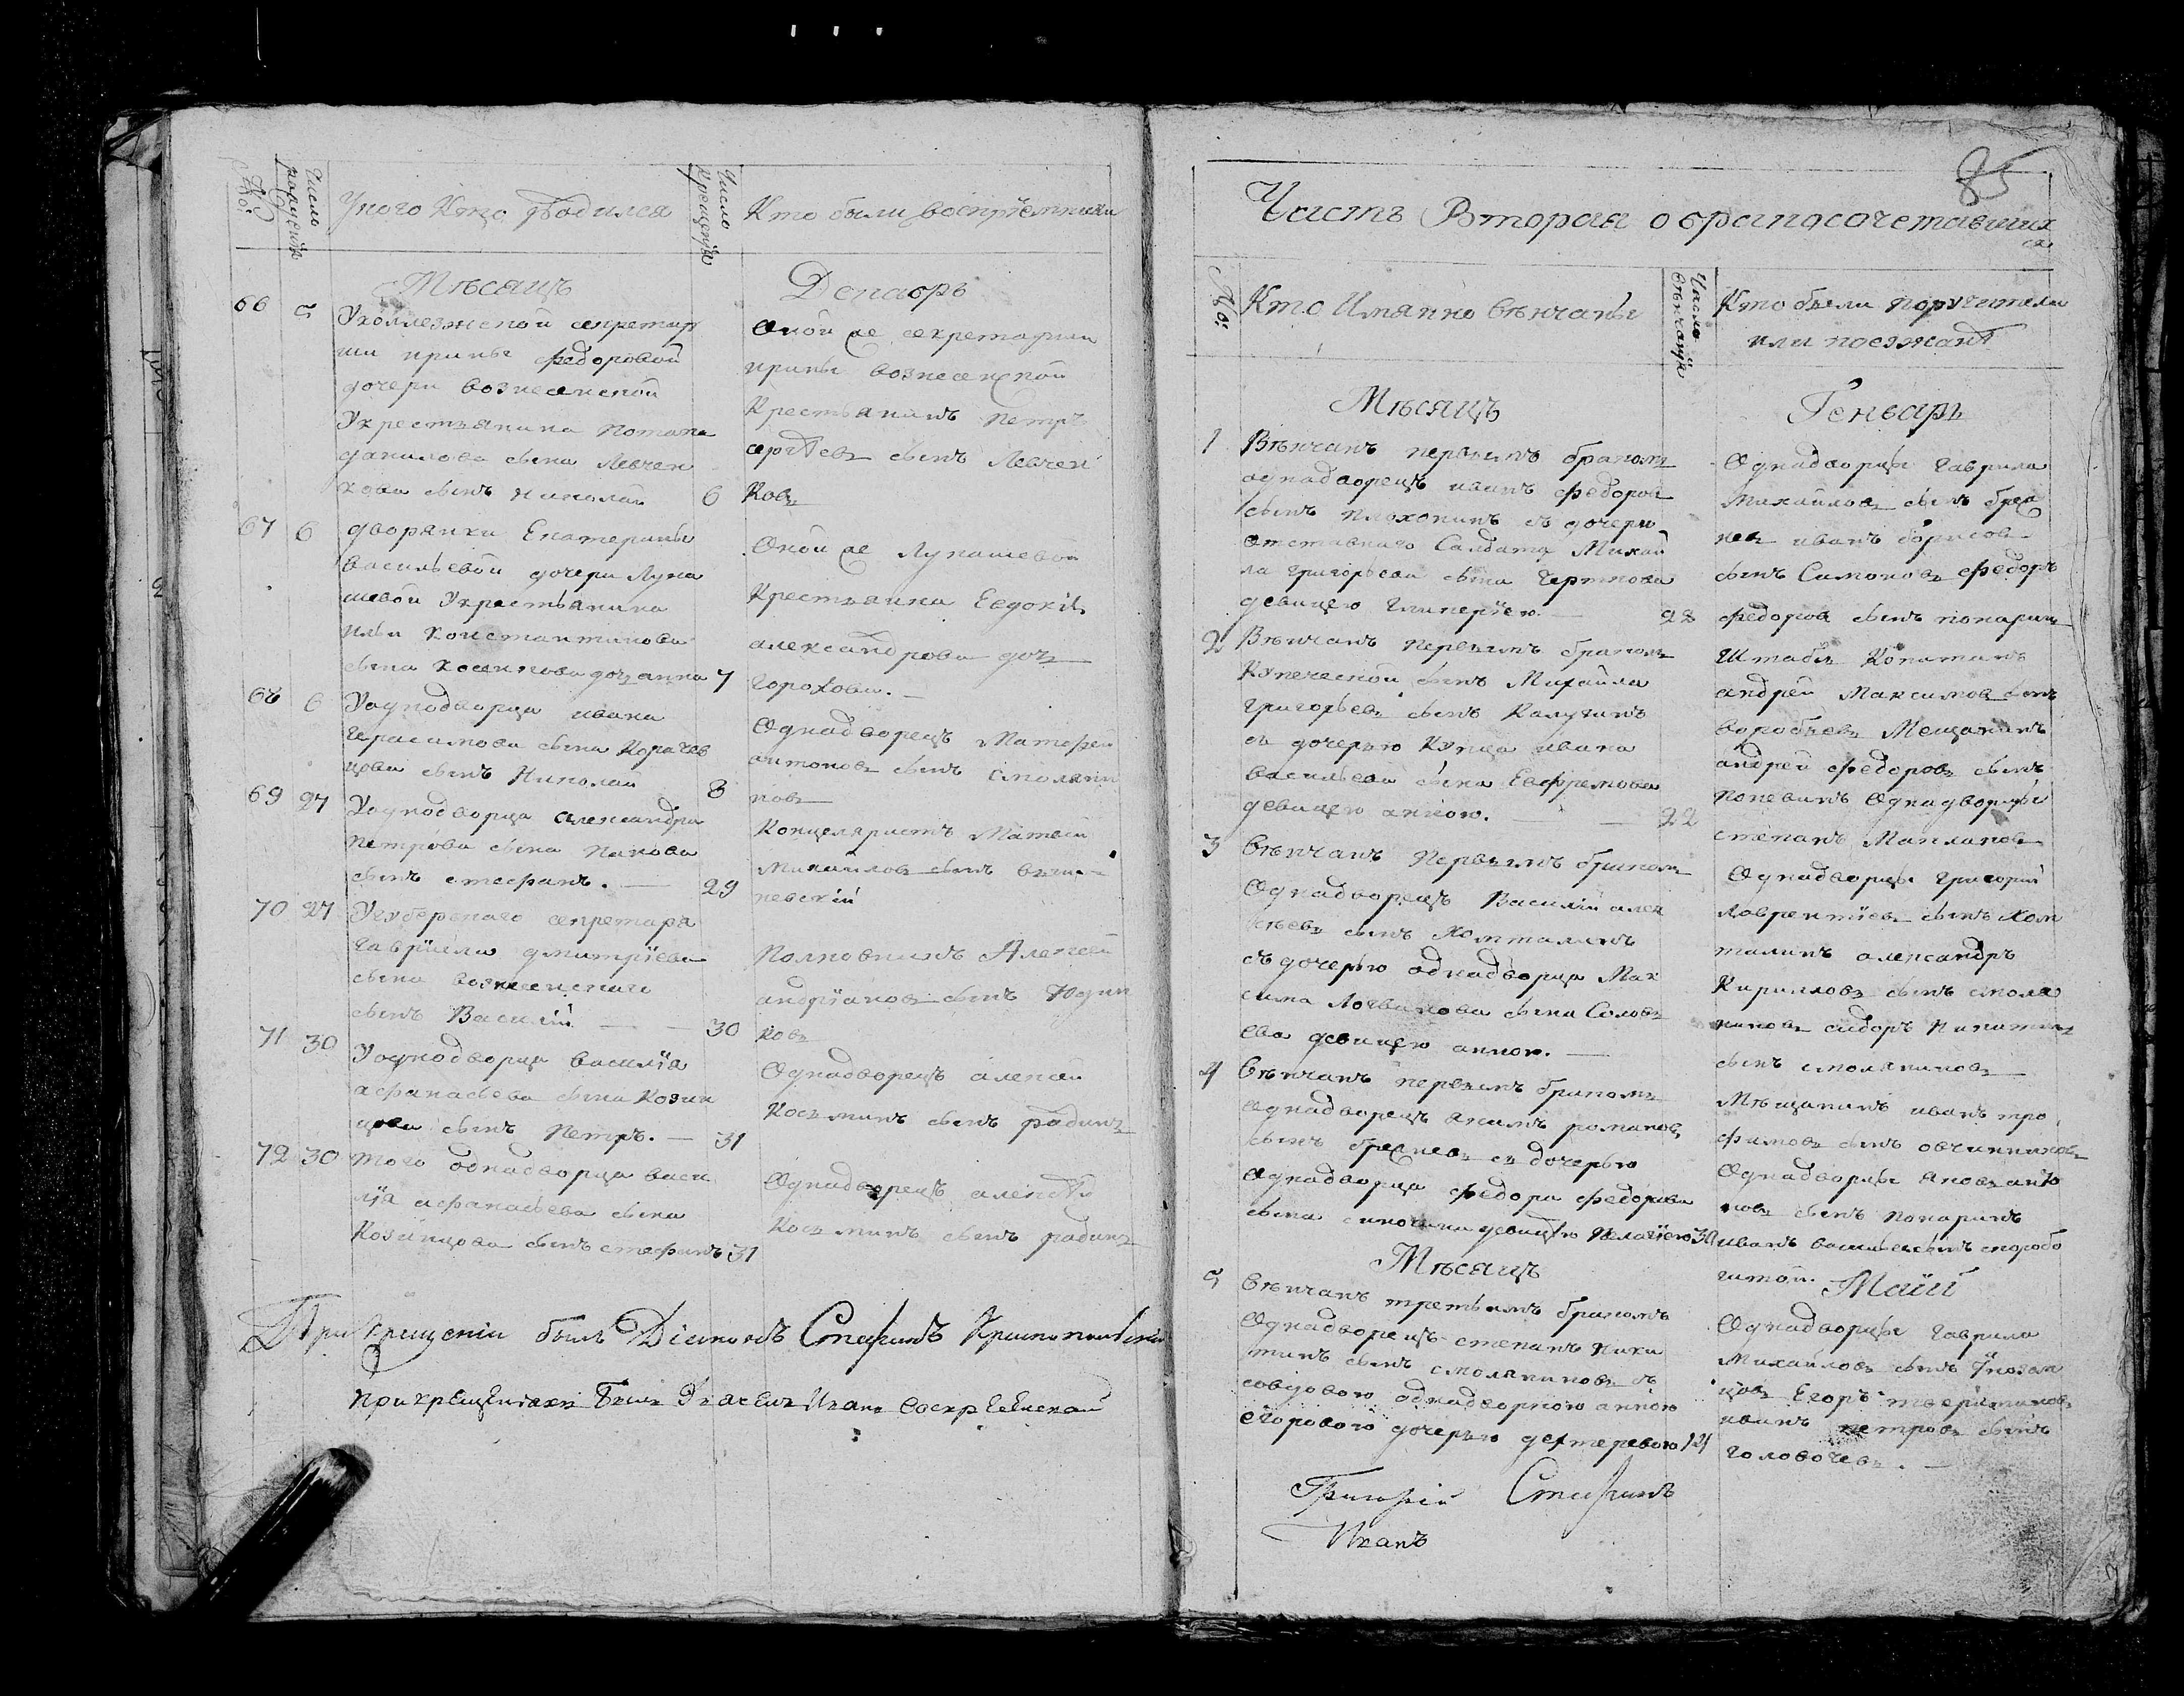 №:
Число рожденiя
У кого кто родился
Число крещенiя
Кто были воспрiемники
Мѣсяцъ
Декабрь
66 5 У коллежской секретар
ши ирины федоровой
дочери вознесенской
У крестьянина потапа
данилова сына Левчен
кова сынъ николай 6
Оной же секретарши
ирины вознесенской
Крестьянинъ петръ
сергѣевъ сынъ Левчен
ковъ
67 6 дворянки Екатерины
васильевой дочери Лука
шевой У крестьянина
ильи константинова
сына косенкова дочь анна 7
Оной же Лукашевой
Крестьянка Евдокiя
александрова дочь
горохова.
68 6 У однодворца ивана
герасимова сына Корачев
цова сынъ Николай 8
Однадворецъ Матофей
антоновъ сынъ смоляни
новъ
69 27 У однодворца александра
петрова сына панова
сынъ стефанъ. 29
Концеляристъ Матвей
михайловъ сынъ
невскiй
70 27 У губернского секретаря
гаврiила дмитрiева
сына вознесенского
сынъ Василiй 30
Полковникъ Алексей
андрiановъ сынъ Юдин
ковъ
71 30 У однодворца василiя
афанасьева сына Козин
цова сынъ петръ. 31
Однадворецъ алексей
косьминъ сынъ радинъ
72 30 того однадворца васи
лiя афанасьева сына
козинцова сынъ стефанъ 31
Однадворецъ алексѣй
косьминъ сынъ радинъ
При Крещенiи былъ Дiаконъ Стефанъ
при крещенiяхъ былъ Иванъ воскресенской
85
Часть Вторая о бракосочетавших
ся
№:
Кто Имянно вѣнчаны
Число вѣнчанiя
Кто были поручители
или поезжанѣ
Мѣсяцъ
Генварь
1 Вѣнчанъ первымъ бракомъ
однадворецъ иванъ федоров
сынъ плохонинъ съ дочерью
отставного Салдата Михай
ла григорьева сына Черткова
девицею гликерiею. 22
Однадворцы гаврила
михайловъ сынъ брез
невъ иванъ борисовъ
сынъ Симоновъ федоръ
федоровъ сынъ понаринъ
2 Вѣнчанъ первымъ бракомъ
Купеческой сынъ Михайла
григорьевъ сынъ Калугинъ
съ дочерью Купца ивана
васильева сына Евфремова
девицею анною. 22
Штабсъ Капитанъ
андрей Максимовъ сынъ
воробьевъ Мещанинъ
андрей федоровъ сынъ
попевинъ Однадворцы
степанъ Маклаковъ
3 Вѣнчанъ первымъ бракомъ
Однадворецъ Василiй алек
сѣевъ сынъ Хомталинъ
съ дочерью однадворца Мак
сима Логвинова сына Соловь
ева девицею анною.
Однадворцы григорий
Лаврентiевъ сынъ Хом
талинъ александръ
Кирилловъ сынъ смоля
ниновъ сидоръ никитинъ
сынъ смоляниновъ
4 Вѣнчанъ первымъ бракомъ
однадворецъ акимъ романовъ
сынъ брезневъ съ дочерью
однадворца федора федорова
сына синочкина девицею пелагiею 30
Мѣщанинъ иванъ тро
фимовъ сынъ овчинниковъ
Однадворцы яковъ анто
новъ сынъ понаринъ
иванъ васильевъ сынъ скоробо
гатой.
Мѣсяцъ
Маiй
5 Вѣнчанъ третьимъ бракомъ
Однадворецъ степанъ ники
тинъ сынъ смоляниновъ съ
совдовою однадворкою анною
егоровою дочерью дехтеревою 21
Однадворцы гаврила
Михайловъ сынъ
цовъ Егоръ
иванъ петровъ сынъ
головочевъ.
Григорiй Стефанъ
Иванъ